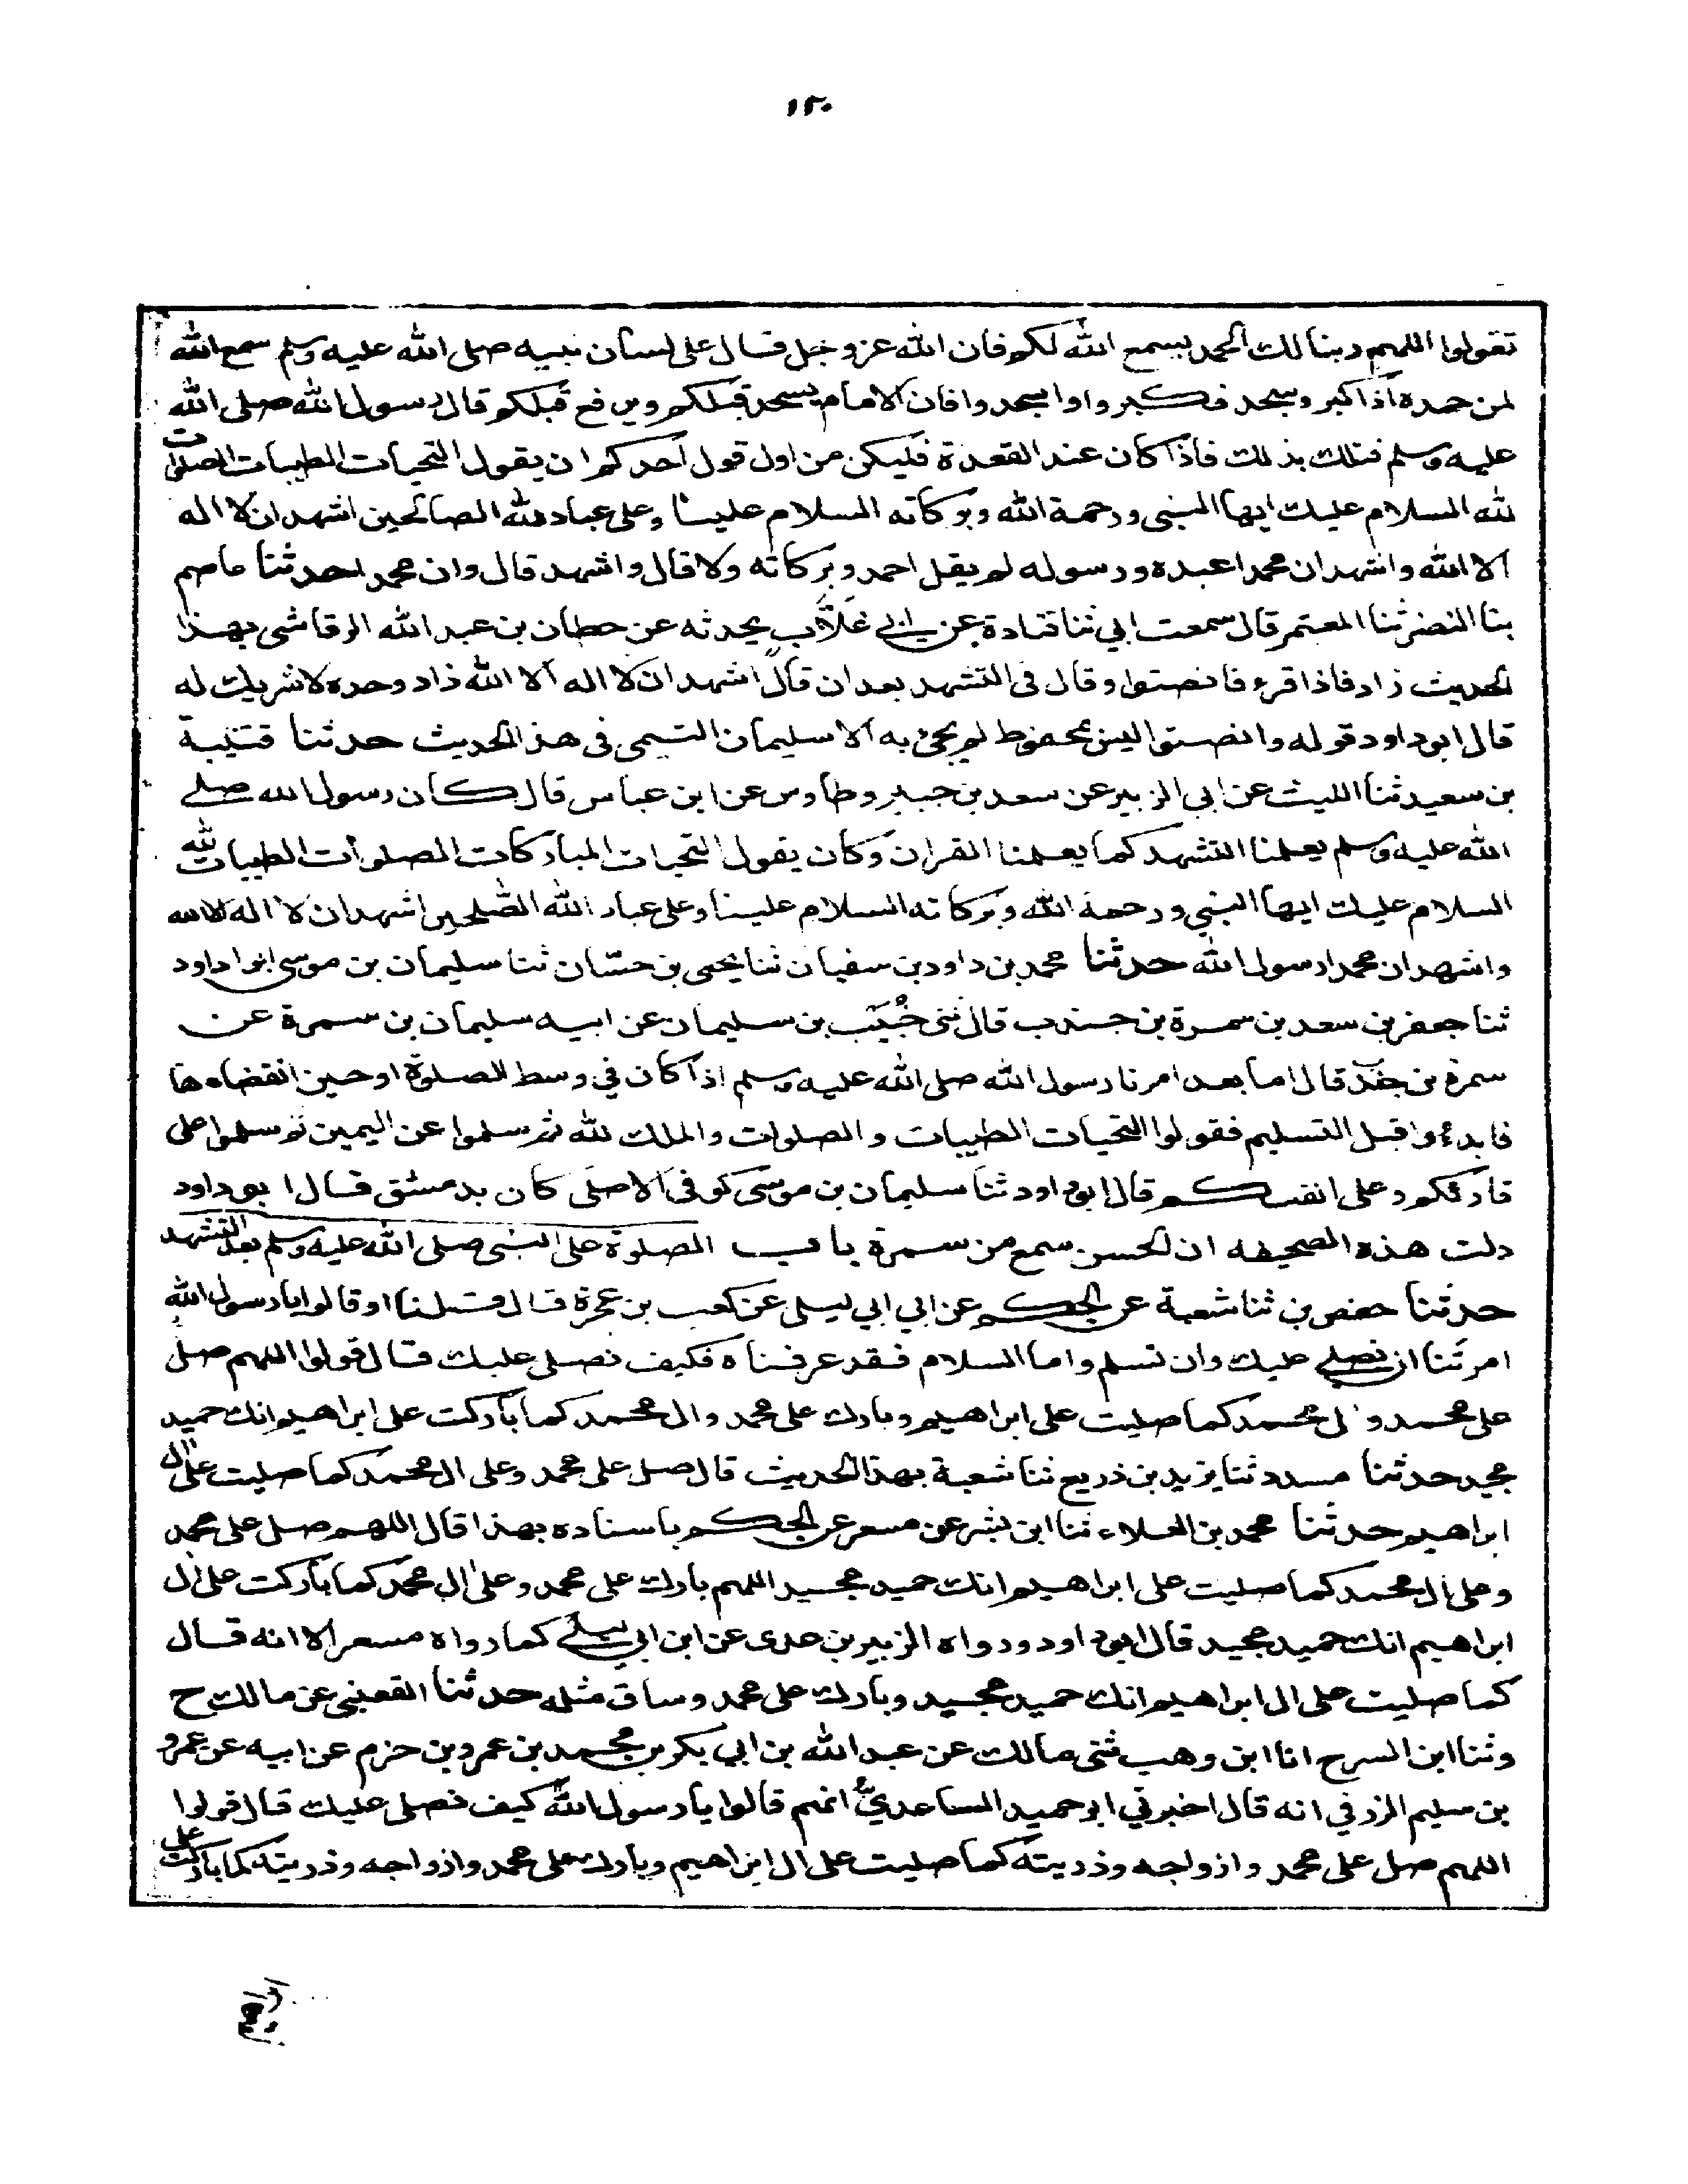 ١٢٠
تقولوا اللهم ربنا لك الحمد يسمع الله لكم فان الله عز وجل قال على لسان نبيه صلى الله عليه وسلم سمع الله
لمن حمده اذا كبر وسجد فكبروا واسجدوا فان الامام يسجد قبلكم ويرفع قبلكم قال رسول الله صلى الله
عليه وسلم فتلك بذلك فاذا كان عند القعدة فليكن من اول قول احدكم ان يقول التحيات الطيبات الصلوات
لله السلام عليك ايها النبي ورحمة الله وبركاته السلام علينا وعلى عباد الله الصالحين اشهد ان لا اله
الا الله واشهد ان محمدا عبده ورسوله لم يقل احمد وبركاته ولا قال واشهد قال وان محمدا حدثنا عاصم
بنا النضر ثنا المعتمر قال سمعت ابي ثنا قتادة عن ابي غلاب يحدثه عن حطان بن عبد الله الرقاشي بهذا
الحديث زاد فاذا قرء فانصتوا وقال في التشهد بعد ان قال اشهد ان لا اله الا الله زاد وحده لا شريك له
قال ابو داود قوله وانصتوا ليس بمحفوظ لم يجئ به الا سليمان التيمي في هذا الحديث حدثنا قتيبة
بن سعيد ثنا الليث عن ابي الزبير عن سعد بن جبير وطاوس عن ابن عباس قال كان رسول الله صلى
الله عليه وسلم يعلمنا التشهد كما يعلمنا القران وكان يقول التحيات المباركات الصلوات الطيبات لله
السلام عليك ايها النبي ورحمة الله وبركاته السلام علينا وعلى عباد الله الصلحين اشهد ان لا اله الا الله
واشهد ان محمدا رسول الله حدثنا محمد بن داود بن سفيان ثنا يحيى بن حسّان ثنا سليمان بن موسى ابو داود
ثنا جعفر بن سعد بن سمرة بن جندب قال ثنى خُبَيب بن سليمان عن ابيه سليمان بن سمرة عن
سمرة بن جندب قال اما بعد امرنا رسول الله صلى الله عليه وسلم اذا كان في وسط الصلوة او حين انقضاءها
فابدءوا قبل التسليم فقولوا التحيات الطيبات والصلوات والملك لله ثم سلموا عن اليمين ثم سلموا على
قارئكم وعلى انفسكم قال ابو داود ثنا سليمان بن موسى كوفى الاصلى كان بدمشق قال ابو داود
دلت هذه الصحيفه ان الحسن سمع من سمرة باب الصلوة على النبى صلى الله عليه وسلم بعد التشهد
حدثنا حفص بن ثنا شعبة عن الحكم عن ابي ابي ليلى عن كعب بن عجرة قال قلنا او قالوا يا رسول الله
امرتنا ان نصلي عليك وان نسلم واما السلام فقد عرفناه فكيف نصلى عليك قال قولوا اللهم صل
على محمد وال محمد كما صليت على ابراهيم وبارك على محمد وال محمد كما باركت على ابراهيم انك حميد
مجيد حدثنا مسدد ثنا يزيد بن زريع ثنا شعبة بهذا الحديث قال صل على محمد وعلى ال محمد كما صليت على ال
ابراهيم حدثنا محمد بن العلاء ثنا ابن بشر عن مسعر عن الحكم باسناده بهذا قال اللهم صل على محمد
وعلى ال محمد كما صليت على ابراهيم انك حميد مجيد اللهم بارك على محمد وعلى ال محمد كما باركت على ال
ابراهيم انك حميد مجيد قال ابو داود ورواه الزبير بن عدى عن ابن ابي ليلى كما رواه مسعر الا انه قال
كما صليت على ال ابراهيم انك حميد مجيد وبارك على محمد وساق مثله حدثنا القعنبي عن مالك ح
وثنا ابن السرح انا ابن وهب ثنى مالك عن عبد الله بن ابي بكر بن محمد بن عمرو بن حزم عن ابيه عن عمرو
بن سليم الزرقي انه قال اخبرني ابو حميد الساعديّ انهم قالوا يا رسول الله كيف نصلى عليك قال قولوا
اللهم صل على محمد وازواجه وذريته كما صليت على ال ابراهيم وبارك على محمد وازواجه وذريته كما باركت على